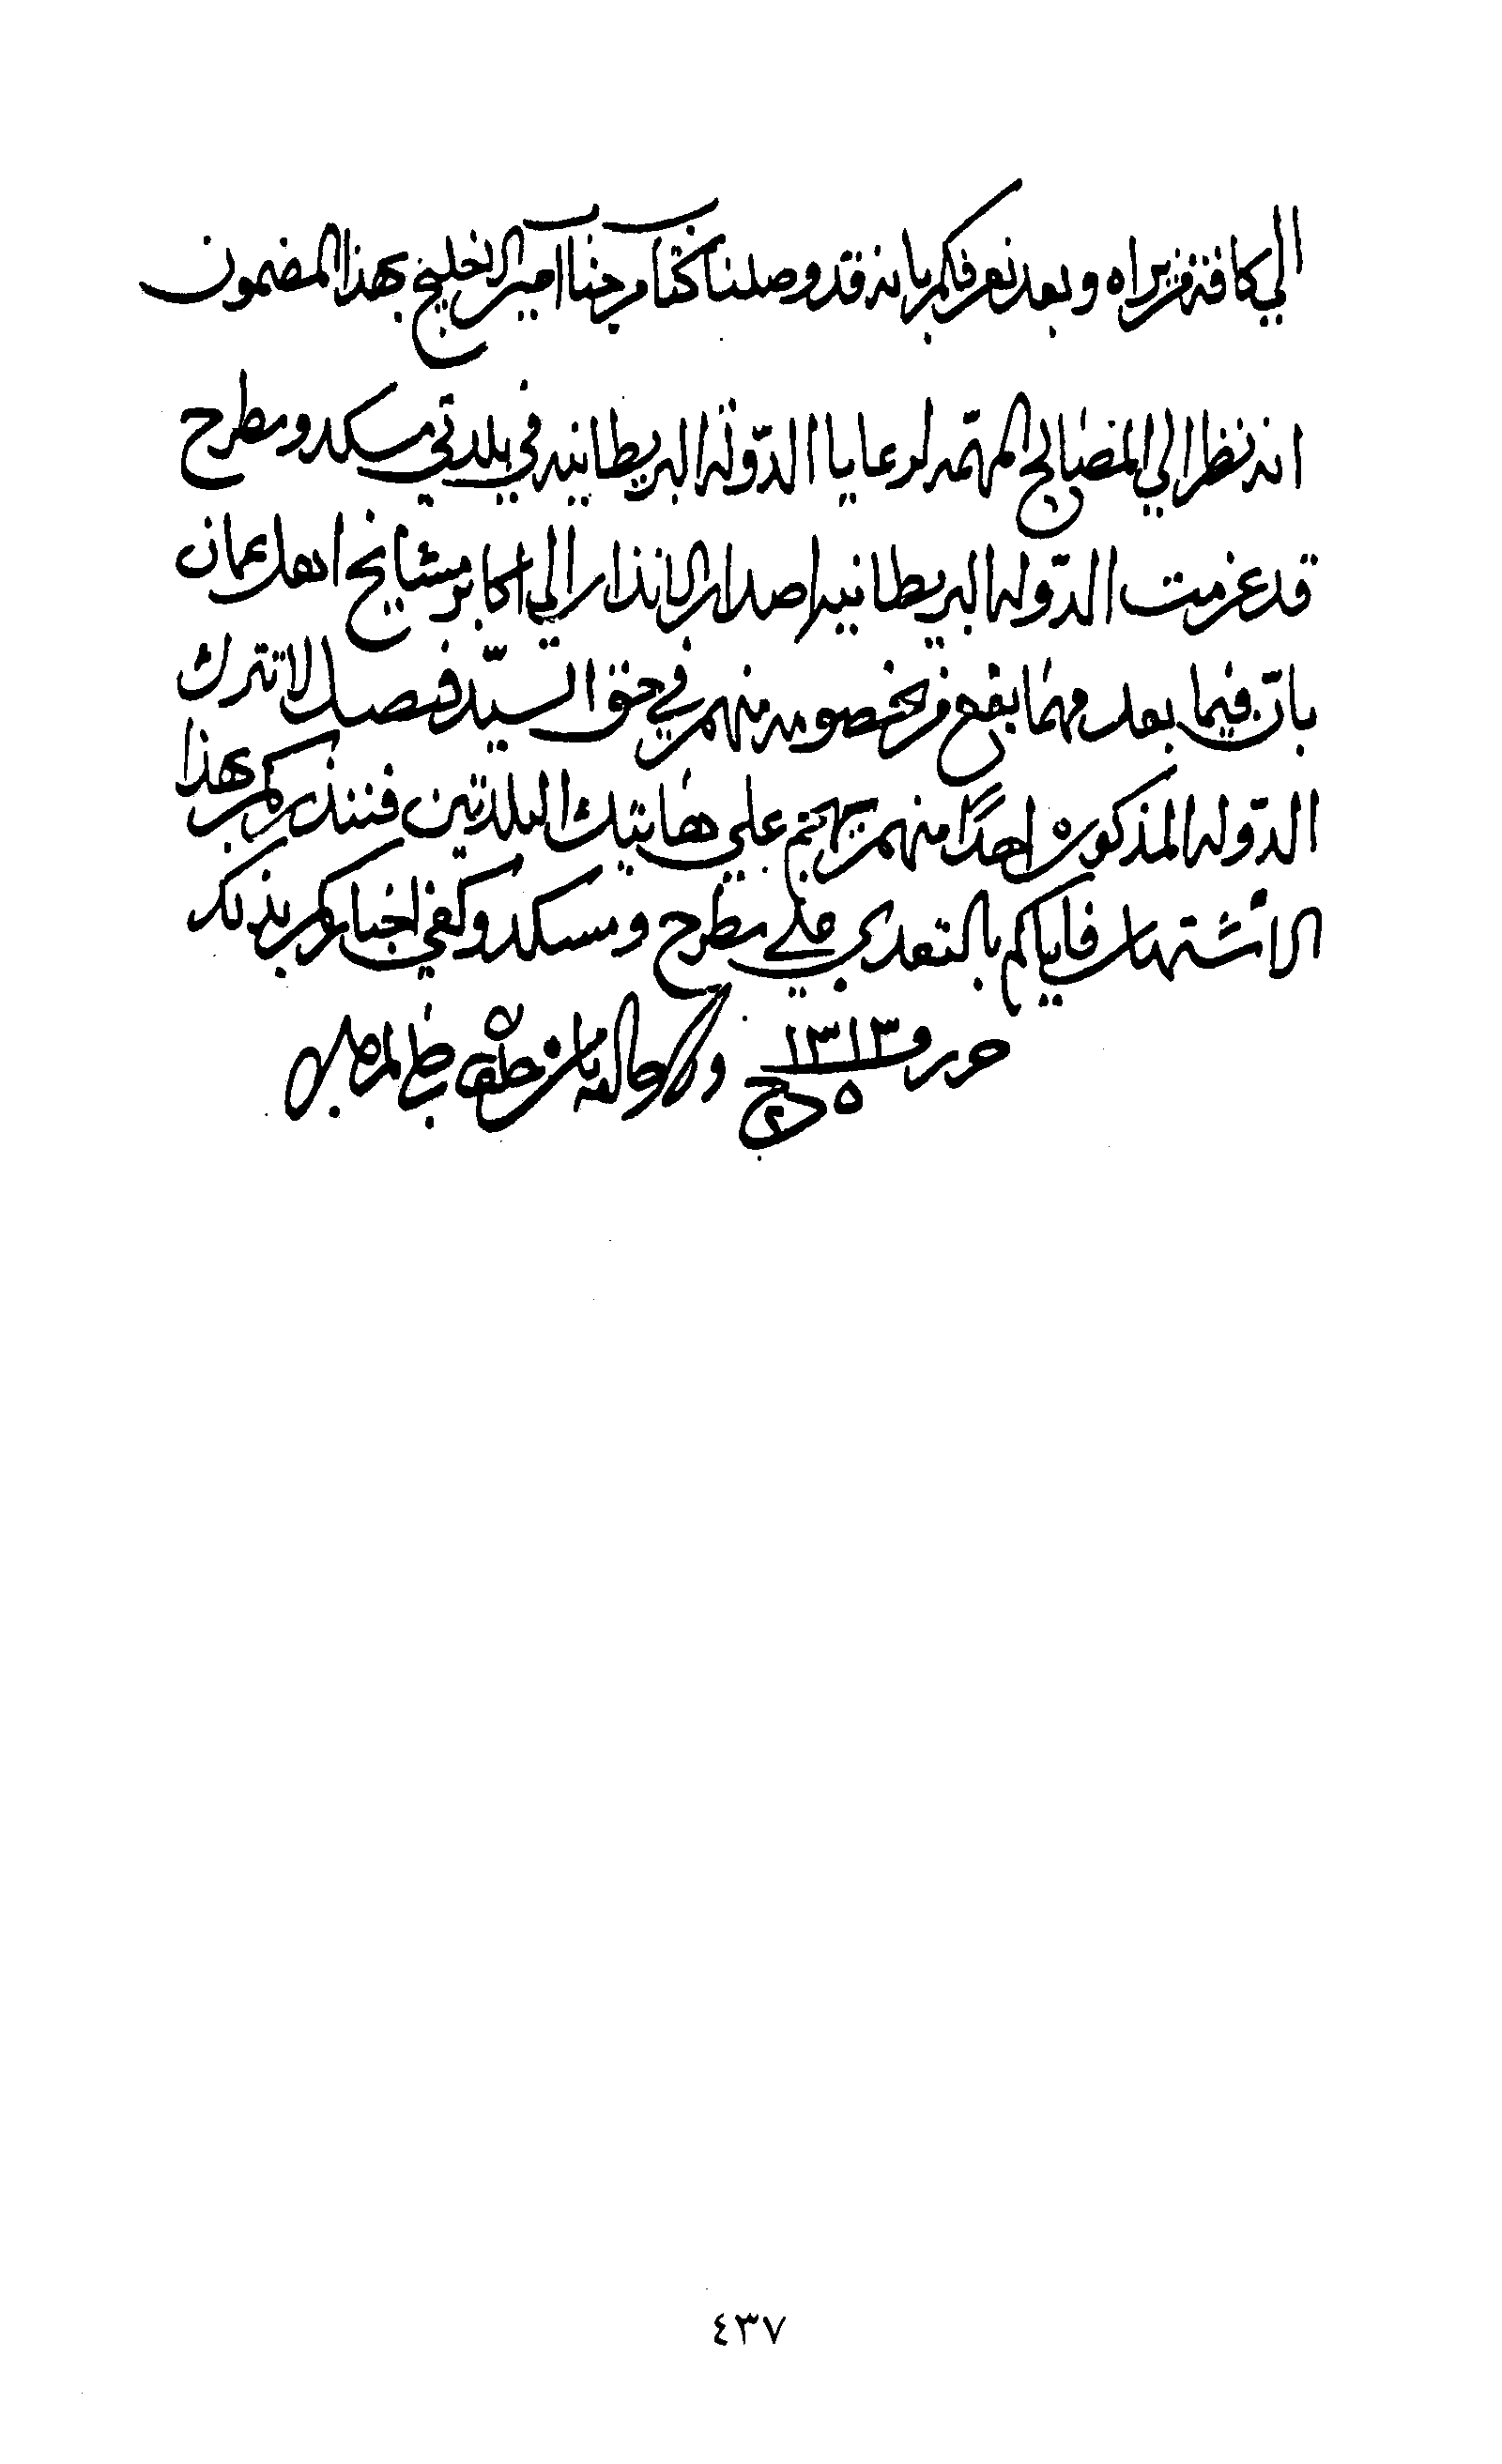 الي كافة من يراه وبعد نعرفكم بانه قد وصلنا كتاب من جناب امير الخليج بهذا المضمون
انه نظرا الي المصالح المهتمه لرعايا الدّولة البريطانيه في بلدتي مسكد ومطرح
قد عزمت الدّوله البريطانيه اصدار الانذار الي اكابر مشايخ اهل عمان
بانّ فيما بعد مهما يقع من خصومه منهم في حق السيّد فيصل لا تترك
الدّوله المذكوره احدًا منهم يهجم علي هاتيك البلدتين فننذركم بهذا
الاشتهار فاياكم بالتعدي علي مطرح ومسكد وكفي اخباركم بذلك
حرر و ١٣١٣ ٥ ج
٤٣٧